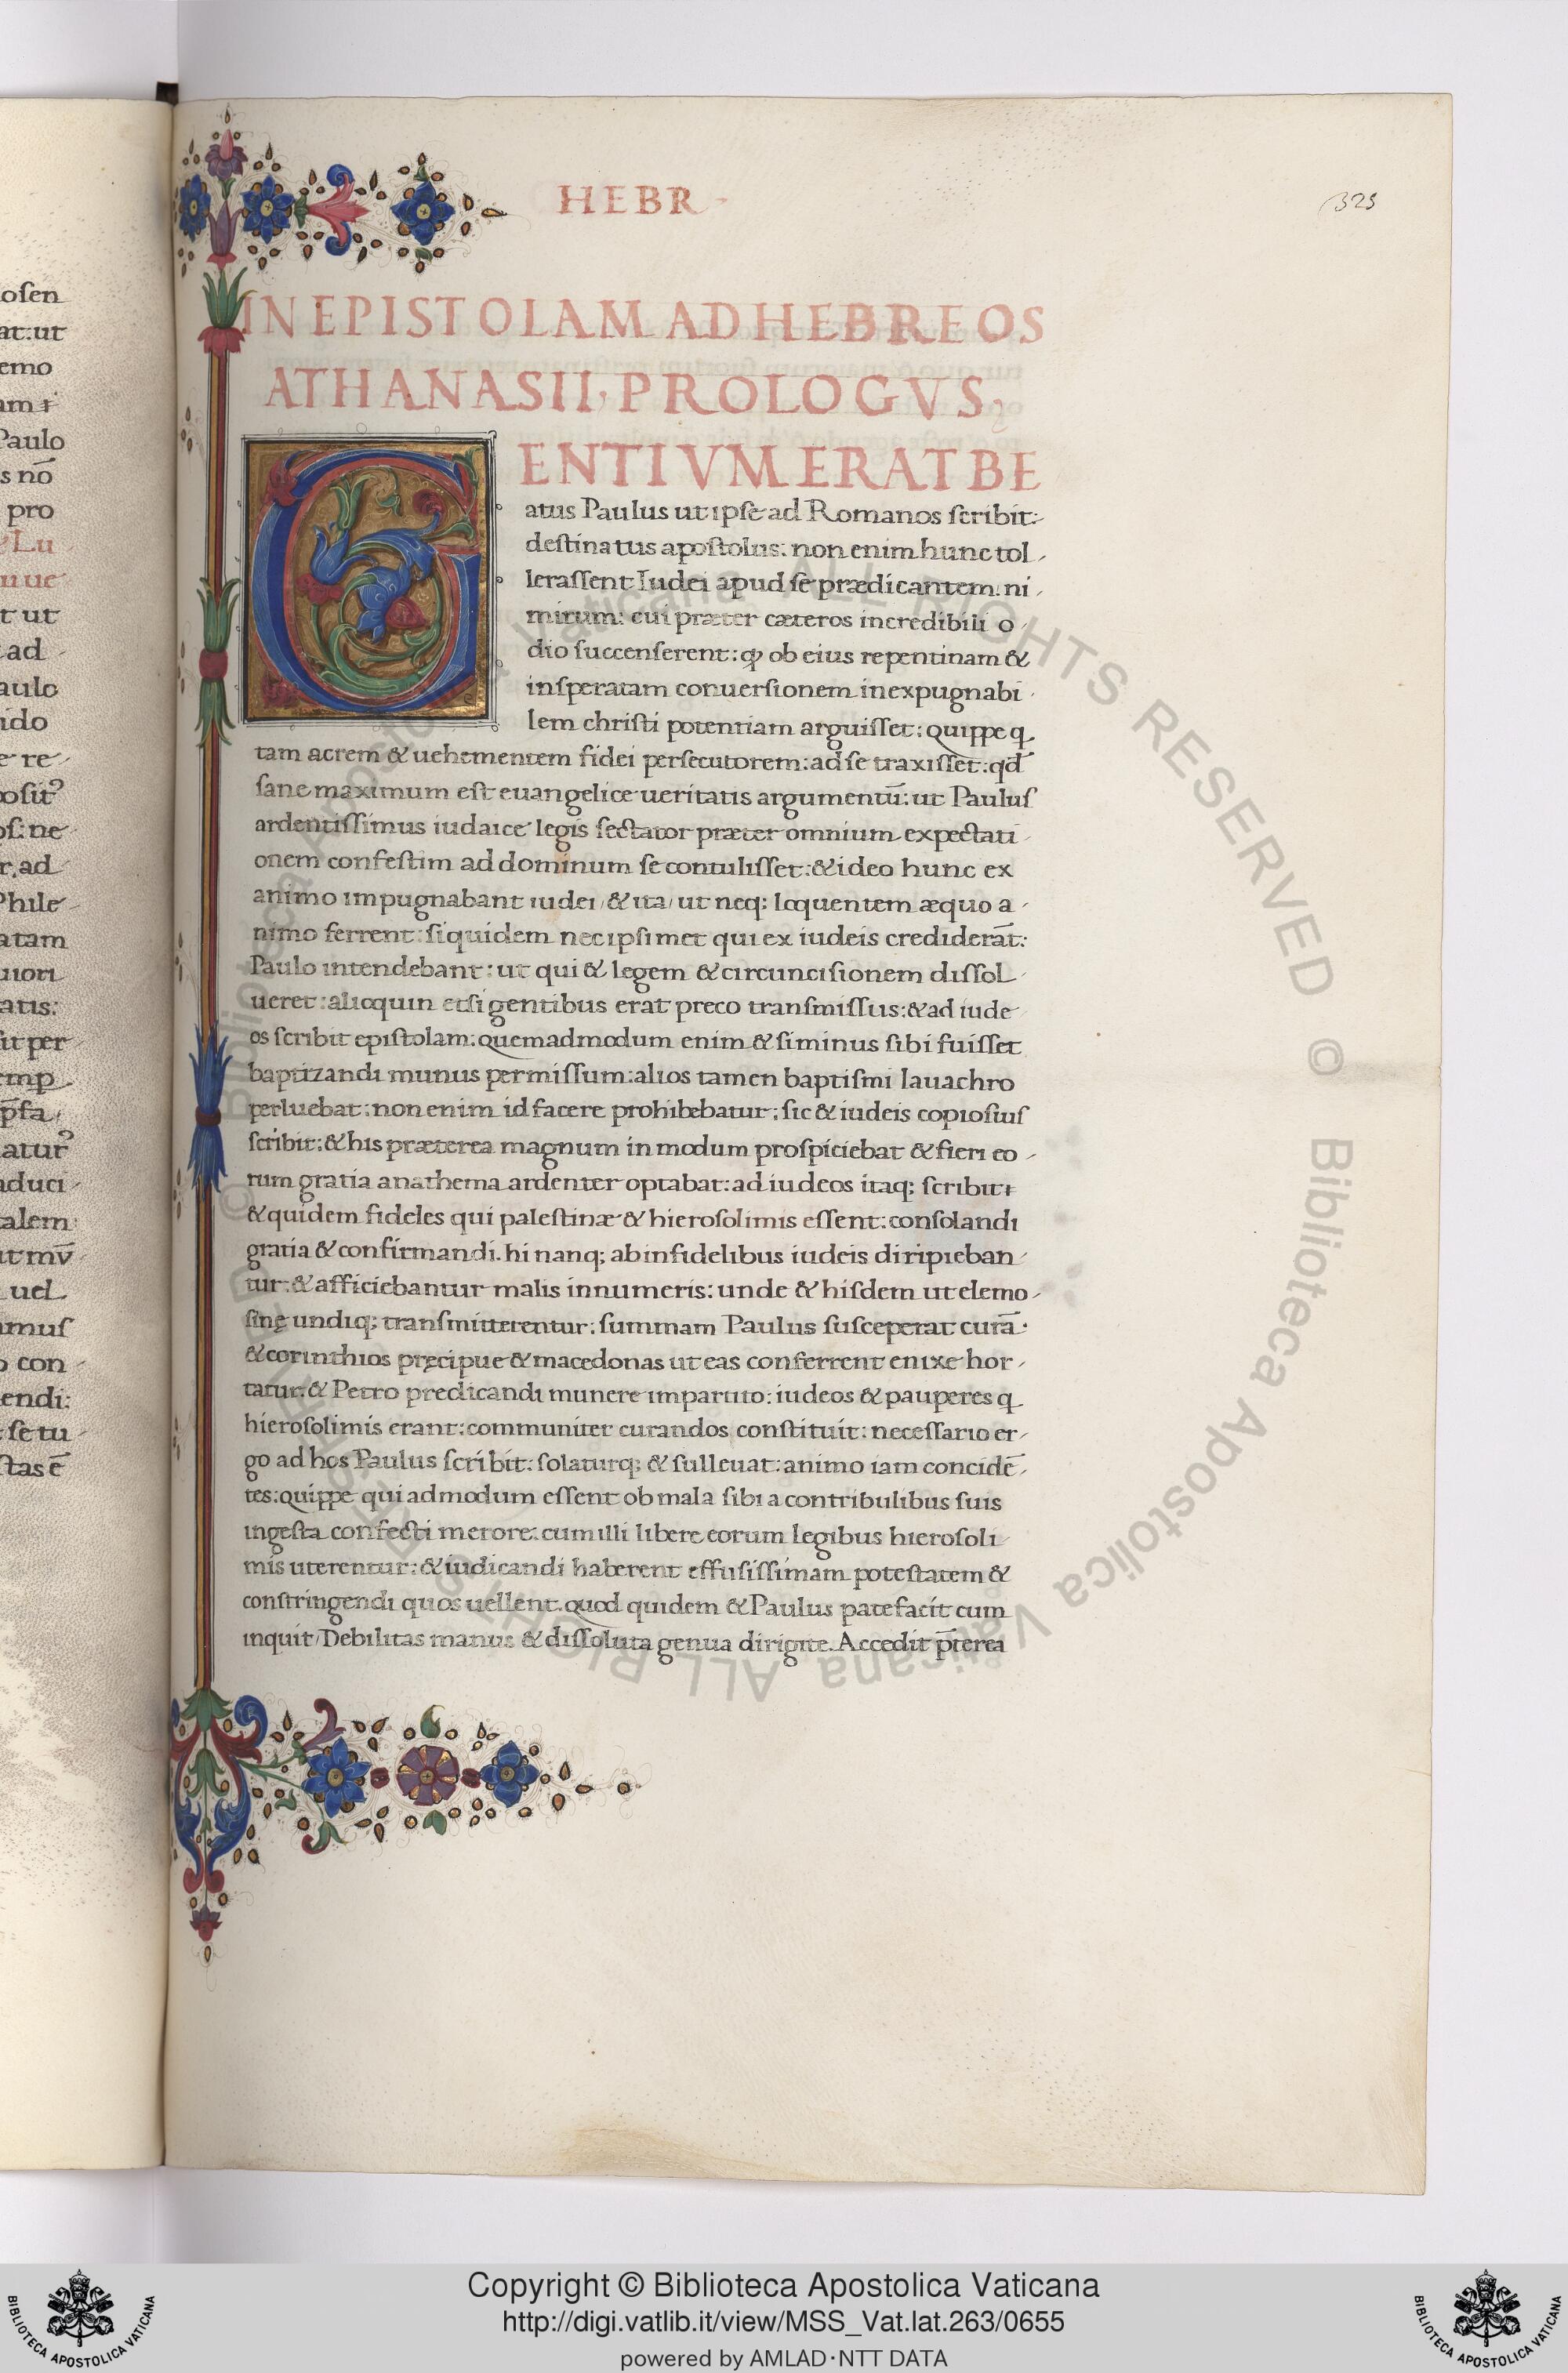 HEBR
325
IN EPISTOLAM AD HEBREOS
ATHANASII, PROLOGVS,
GENTIVM ERAT BE
atus Paulus ut ipse ad Romanos scribit:
destinatus apostolus: non enim hunc tol
lerassent Iudei apud se prædicantem: ni
mirum: cui præter cæteros incredibili o
dio succenserent: ꝙ ob eius repentinam &
insperatam conuersionem inexpugnabi
lem christi potentiam arguisset: quippe q
tam acrem & uehementem fidei persecutorem: ad se traxisset: qd̄
sane maximum est euangelice ueritatis argumentū: ut Paulus
ardentissimus iudaice legis sectator præter omnium expectati
onem confestim ad dominum se contulisset: & ideo hunc ex
animo impugnabant iudei / & ita / ut neq; loquentem æquo a
nimo ferrent: siquidem nec ipsimet qui ex iudeis crediderāt:
Paulo intendebant: ut qui & legem & circuncisionem dissol
ueret: alioquin etsi gentibus erat preco transmissus: & ad iude
os scribit epistolam: quemadmodum enim & si minus sibi fuisset
baptizandi munus permissum: alios tamen baptismi lauachro
perluebat: non enim id facere prohibebatur: sic & iudeis copiosius
scribit: & his præterea magnum in modum prospiciebat & fieri eo
rum gratia anathema ardenter optabat: ad iudeos itaq; scribit
& quidem fideles qui palestinæ & hierosolimis essent: consolandi
gratia & confirmandi. hi nanq; ab infidelibus iudeis diripieban
tur: & afficiebantur malis innumeris: unde & hisdem ut elemo
sinę undiq; transmitterentur: summam Paulus susceperat curā.
& corinthios pręcipue & macedonas ut eas conferrent enixe hor
tatur: & Petro predicandi munere impartito: iudeos & pauperes q
hierosolimis erant: communiter curandos constituit: necessario er
go ad hos Paulus scribit: solaturq; & subleuat: animo iam concidē
tes: quippe qui admodum essent ob mala sibi a contribulibus suis
ingesta confecti merore: cum illi libere eorum legibus hierosoli
mis uterentur: & iudicandi haberent effusissimam potestatem &
constringendi quos uellent. quod quidem & Paulus patefacit cum
inquit / Debilitas manus & dissoluta genua dirigite. Accedit p̄terea
Copyright © Biblioteca Apostolica Vaticana
http://digi.vatlib.it/view/MSS_Vat.lat.263/0655
powered by AMLAD·NTT DATA